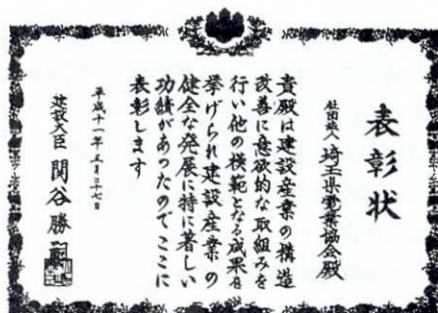 表彰状
社団法人 埼玉県電業協会殿
貴殿は建設産業の構造
改善に意欲的な取組みを
行い他の模範となる成果を
挙げられ建設産業の
健全な発展に特に著しい
功績があったのでここに
表彰します
平成十一年五月二十七日
建設大臣 関谷勝嗣